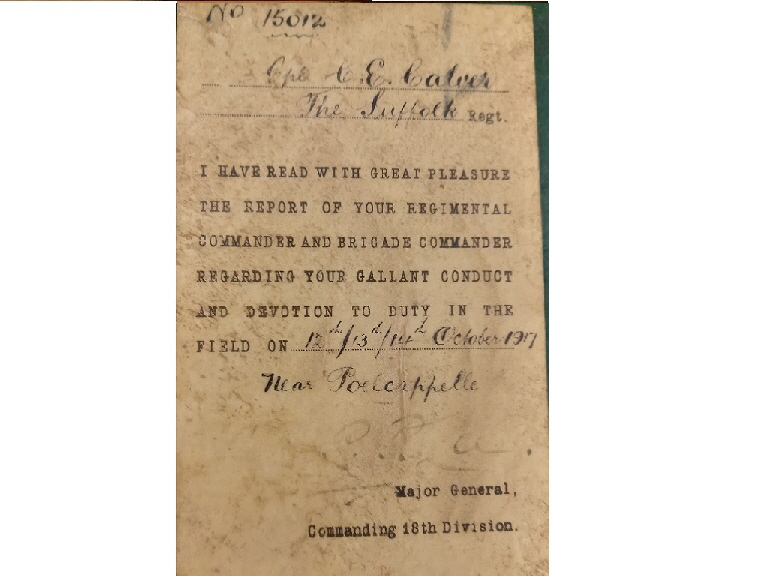 No 15012
Cpl C. E. Calver
The Suffolk Regt.
I HAVE READ WITH GREAT PLEASURE
THE REPORT OF YOUR REGIMENTAL
COMMANDER AND BRIGADE COMMANDER
REGARDING YOUR GALLANT CONDUCT
AND DEVOTION TO DUTY IN THE
FIELD ON 12th/13th/14th October 1917
Near Poelcappelle
Major General,
Commanding 18th Division.